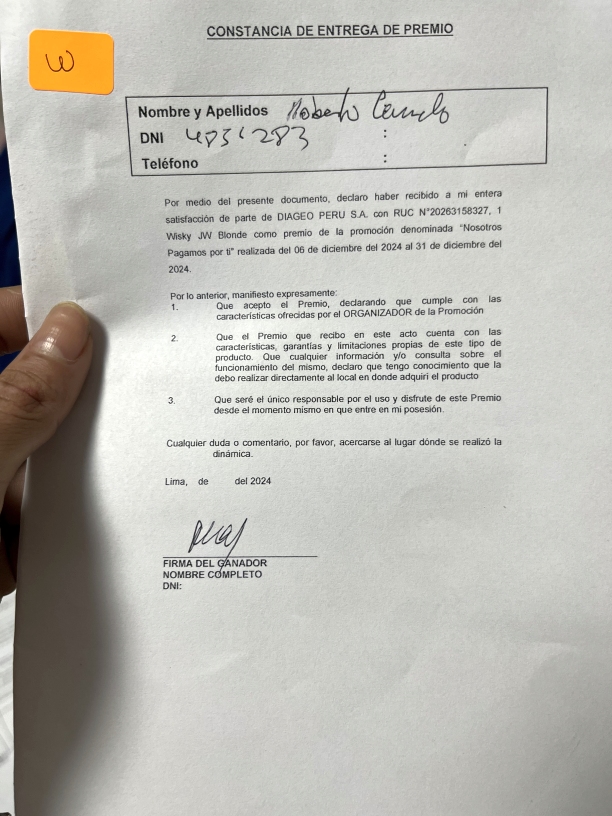 CONSTANCIA DE ENTREGA DE PREMIO
W
Nombre y Apellidos Roberto
DNI :
Teléfono :
Por medio del presente documento, declaro haber recibido a mi entera
satisfacción de parte de DIAGEO PERU S.A. con RUC N°20263158327, 1
Wisky JW Blonde como premio de la promoción denominada "Nosotros
Pagamos por ti" realizada del 06 de diciembre del 2024 al 31 de diciembre del
2024.
Por lo anterior, manifiesto expresamente:
1. Que acepto el Premio, declarando que cumple con las
características ofrecidas por el ORGANIZADOR de la Promoción
2. Que el Premio que recibo en este acto cuenta con las
características, garantías y limitaciones propias de este tipo de
producto. Que cualquier información y/o consulta sobre el
funcionamiento del mismo, declaro que tengo conocimiento que la
debo realizar directamente al local en donde adquirí el producto
3. Que seré el único responsable por el uso y disfrute de este Premio
desde el momento mismo en que entre en mi posesión.
Cualquier duda o comentario, por favor, acercarse al lugar dónde se realizó la
dinámica.
Lima, de del 2024
FIRMA DEL GANADOR
NOMBRE COMPLETO
DNI: